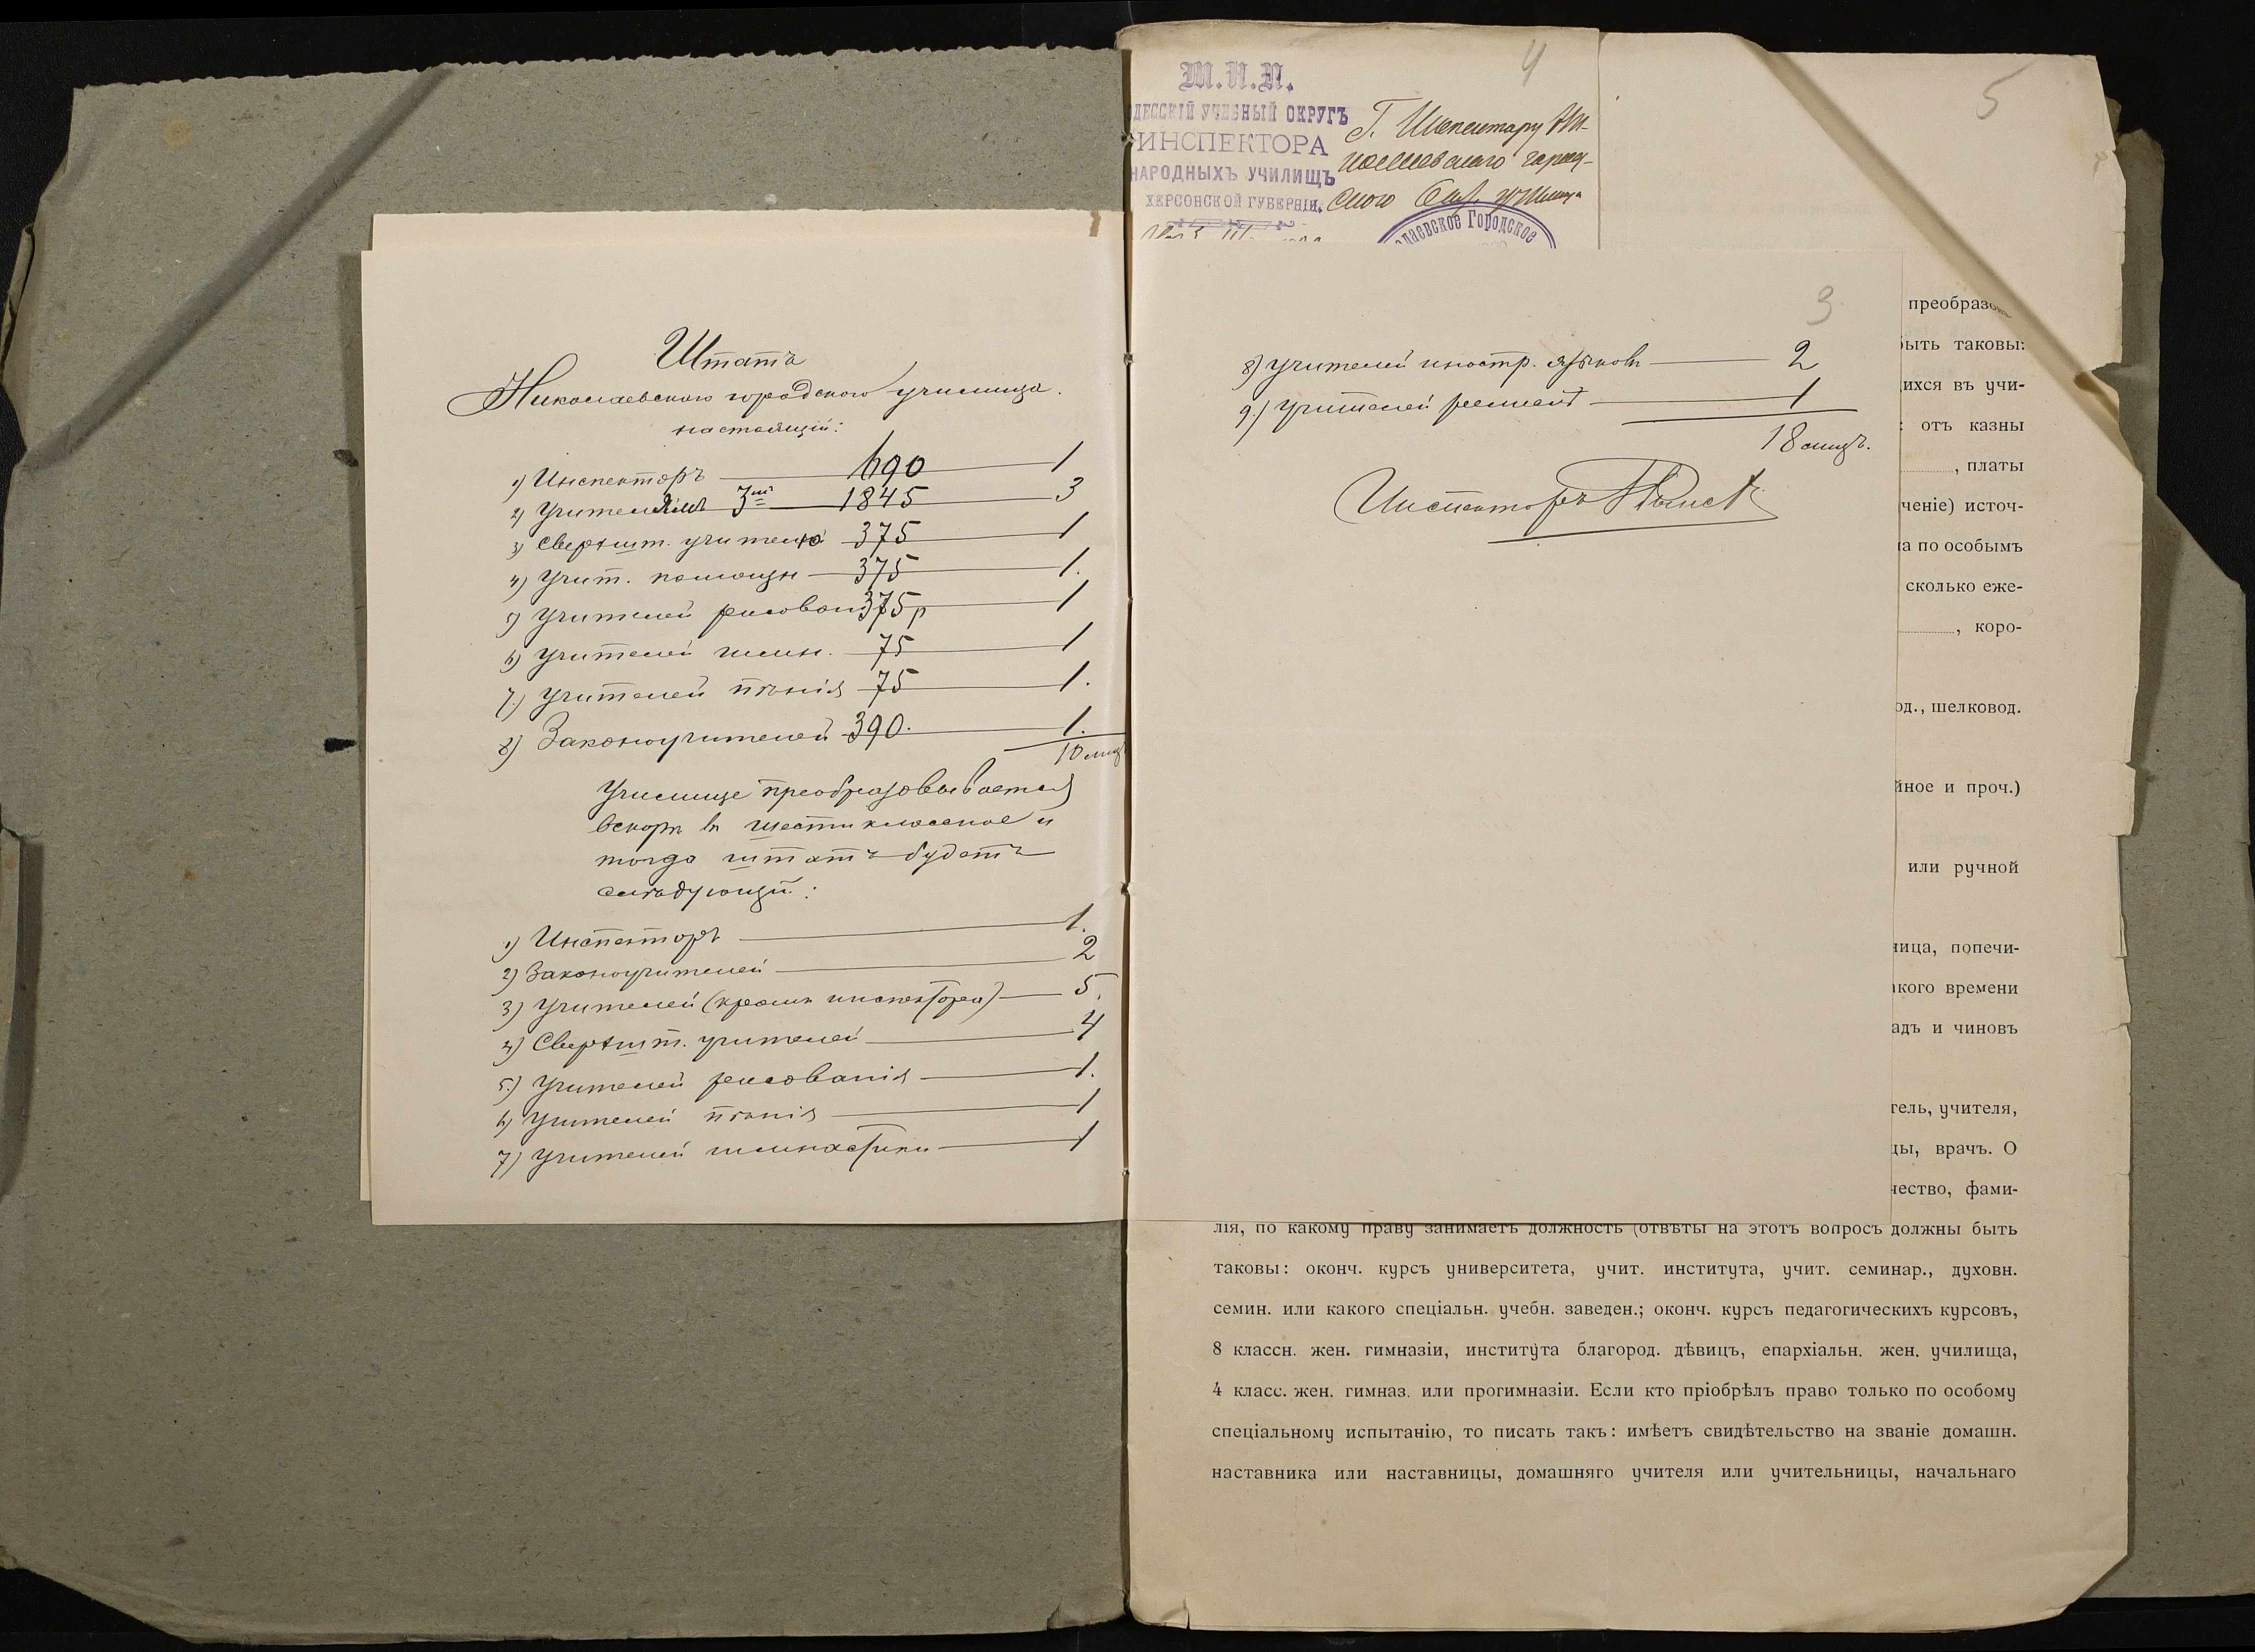 Штатъ
Николаевскаго городского училища.
настоящій:
1) Инспекторъ — 690 — 1
2) Учителямъ 3мъ — 1845 — 3
3) Сверхшт. учителю — 375 — 1
4) Учит. помощн — 375 — 1.
5) Учителей рисован 375 р — 1
6) Учителей гимн. — 75 — 1
7) Учителей пѣнія — 75 — 1.
8) Законоучителей — 390. — 1.
10 лицъ
Училище преобразовывается
вскорѣ въ шестиклассное и
тогда штатъ будетъ
слѣдующій:
1) Инспекторъ — 1.
2) Законоучителей — 2
3) Учителей (кромѣ инспектора) — 5.
4) Сверхшт. учителей — 4
5) Учителей рисованія — 1.
6) Учителей пѣнія — 1
7) Учителей гимнастики — 1
3
8) Учителей иностр. языковъ — 2
9) Учителей ремеслъ — 1
18 лицъ.
Инспекторъ
4
М.Н.П.
ОДЕССКІЙ УЧЕБНЫЙ ОКРУГЪ
ИНСПЕКТОРА
НАРОДНЫХЪ УЧИЛИЩЪ
ХЕРСОНСКОЙ ГУБЕРНІИ.
Г. Инспектору Ни-
колаевскаго город-
ского училища
лаевское Городское
5
преобразо
быть таковы:
ихся въ учи-
: отъ казны
, платы
ченіе) источ-
а по особымъ
сколько еже-
, коро-
од., шелковод.
йное и проч.)
или ручной
ница, попечи-
акого времени
адъ и чиновъ
тель, учителя,
цы, врачъ. О
чество, фами-
лія, по какому праву занимаетъ должность (отвѣты на этотъ вопросъ должны быть
таковы: оконч. курсъ университета, учит. института, учит. семинар., духовн.
семин. или какого спеціальн. учебн. заведен.; оконч. курсъ педагогическихъ курсовъ,
8 классн. жен. гимназіи, института благород. дѣвицъ, епархіальн. жен. училища,
4 класс. жен. гимназ. или прогимназіи. Если кто пріобрѣлъ право только по особому
спеціальному испытанію, то писать такъ: имѣетъ свидѣтельство на званіе домашн.
наставника или наставницы, домашняго учителя или учительницы, начальнаго